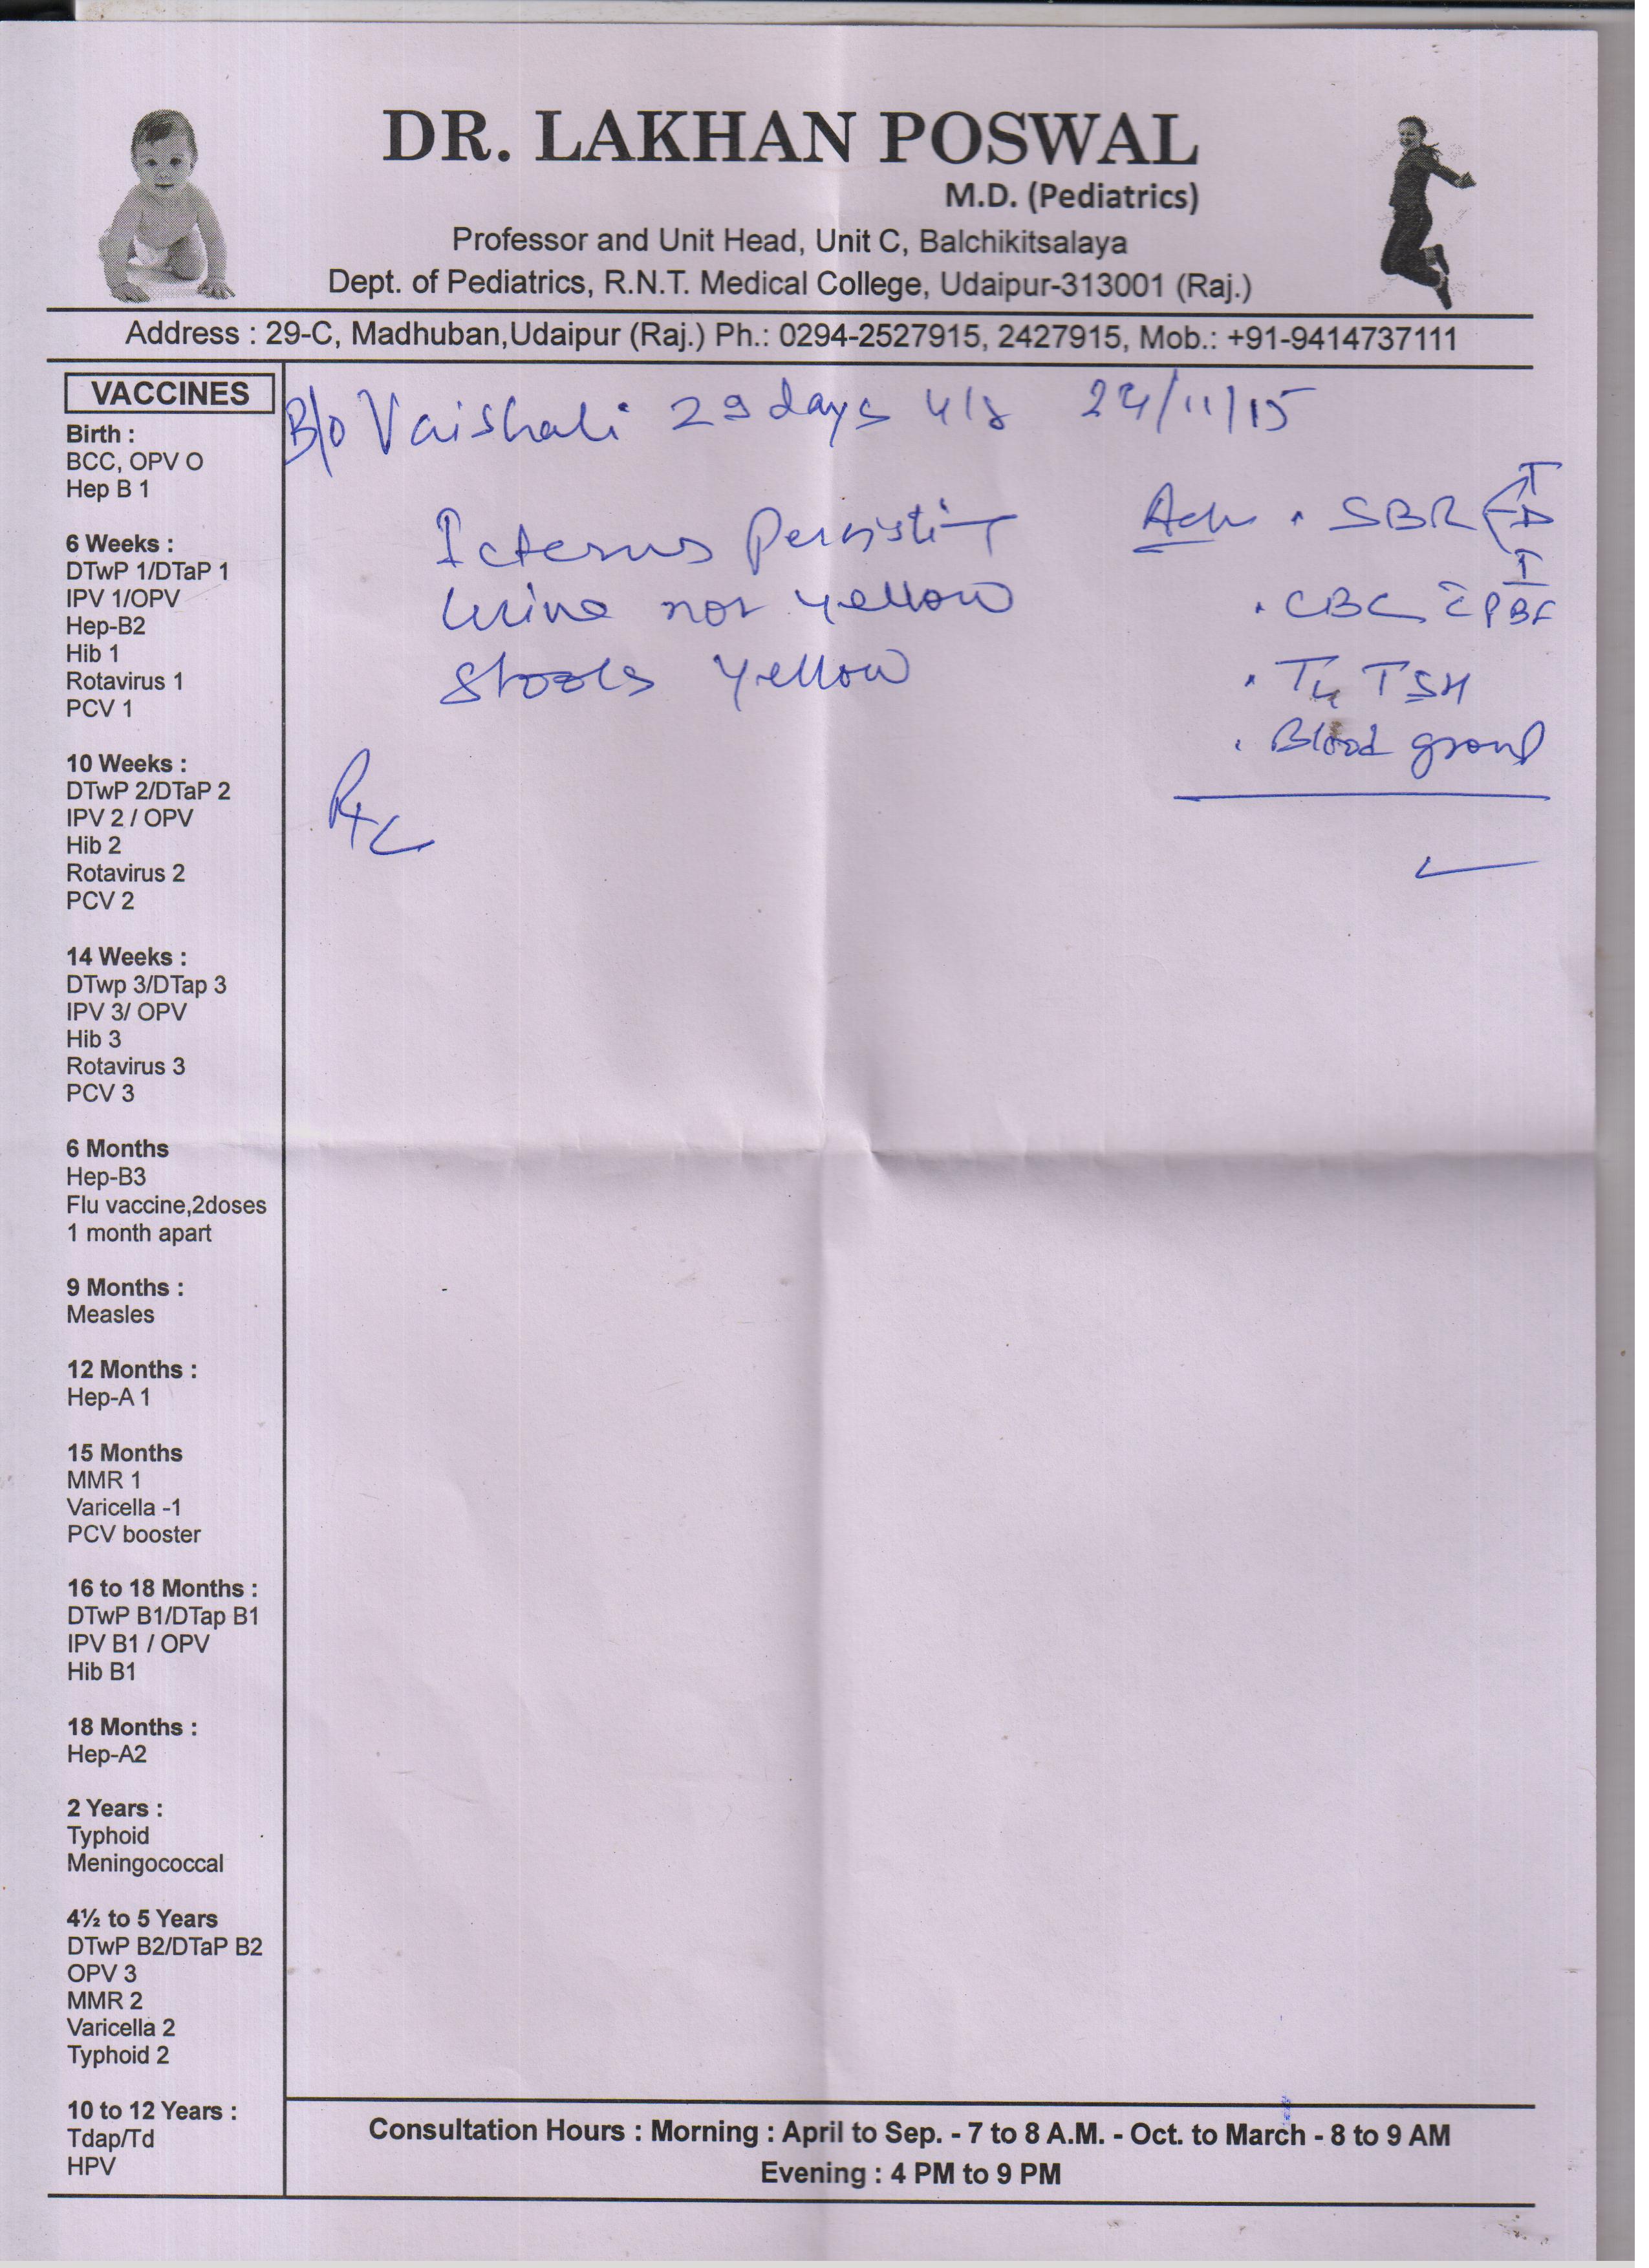 DR. LAKHAN POSWAL
M.D. (Pediatrics)
Professor and Unit Head, Unit C, Balchikitsalaya
Dept. of Pediatrics, R.N.T. Medical College, Udaipur-313001 (Raj.)
Address : 29-C, Madhuban,Udaipur (Raj.) Ph.: 0294-2527915, 2427915, Mob.: +91-9414737111
VACCINES
Birth :
BCC, OPV O
Hep B 1
6 Weeks :
DTwP 1/DTaP 1
IPV 1/OPV
Hep-B2
Hib 1
Rotavirus 1
PCV 1
10 Weeks :
DTwP 2/DTaP 2
IPV 2 / OPV
Hib 2
Rotavirus 2
PCV 2
14 Weeks :
DTwp 3/DTap 3
IPV 3/ OPV
Hib 3
Rotavirus 3
PCV 3
6 Months
Hep-B3
Flu vaccine,2doses
1 month apart
9 Months :
Measles
12 Months :
Hep-A 1
15 Months
MMR 1
Varicella -1
PCV booster
16 to 18 Months :
DTwP B1/DTap B1
IPV B1 / OPV
Hib B1
18 Months :
Hep-A2
2 Years :
Typhoid
Meningococcal
4½ to 5 Years
DTwP B2/DTaP B2
OPV 3
MMR 2
Varicella 2
Typhoid 2
10 to 12 Years :
Tdap/Td
HPV
B/o Vaishali 29 days
Icterus Persisting
Urine not yellow
Stools yellow
Adv . SBR T D I
. CBC c̄ PBF
. T4 TSH
. Blood group
Consultation Hours : Morning : April to Sep. - 7 to 8 A.M. - Oct. to March - 8 to 9 AM
Evening : 4 PM to 9 PM